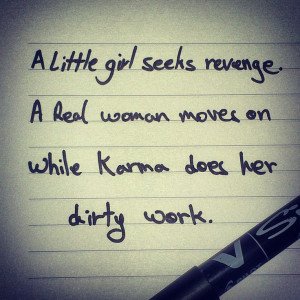 A Little girl seeks revenge.
A Real woman moves on
while Karma does her
dirty work.
V S